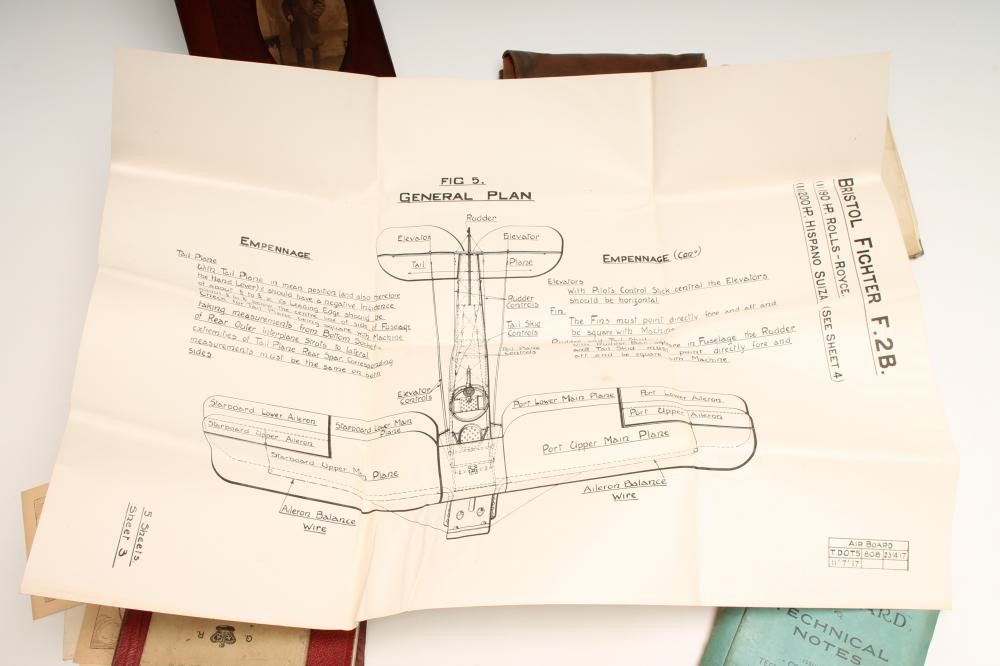 FIG 5.
GENERAL PLAN
Rudder
Elevator
Elevator
Tail
Plane
Rudder
Controls
Tail Skid
Controls
Tail Plane
Controls
Elevator
Controls
EMPENNAGE
Tail Plane
With Tail Plane in mean position (and also therefore
the Hand Lever) it should have a negative incidence
of about
its Leading Edge should be
the centre line of side of Fuselage
being square with Machine
taking measurements from Bottom Sockets
of Rear Outer Interplane Struts to lateral
extremities of Tail Plane Rear Spar, corresponding
measurements must be the same on both
sides.
EMPENNAGE (CON^D)
Elevators
With Pilots Control Stick central the Elevators
should be horizontal.
Fin.
The Fins must point directly fore and aft and
be square with Machine
Rudder and Tail Skid
With Rudder Bar square in Fuselage the Rudder
and Tail Skid must point directly fore and
aft and be square with Machine.
BRISTOL FIGHTER F.2B.
(I) 190 HP. ROLLS-ROYCE.
(II) 200 HP. HISPANO SUIZA (SEE SHEET 4)
Starboard Lower Aileron
Starboard Upper Aileron
Starboard Lower Main
Plane
Starboard Upper Main Plane
Port Lower Main Plane
Port Lower Aileron
Port Upper Aileron
Port Upper Main Plane
Aileron Balance
Wire
Aileron Balance
Wire
5 Sheets
Sheet 3
AIR BOARD
T DOTS 808 23'4'17
11'7'17
G. R
TECHNICAL
NOTES